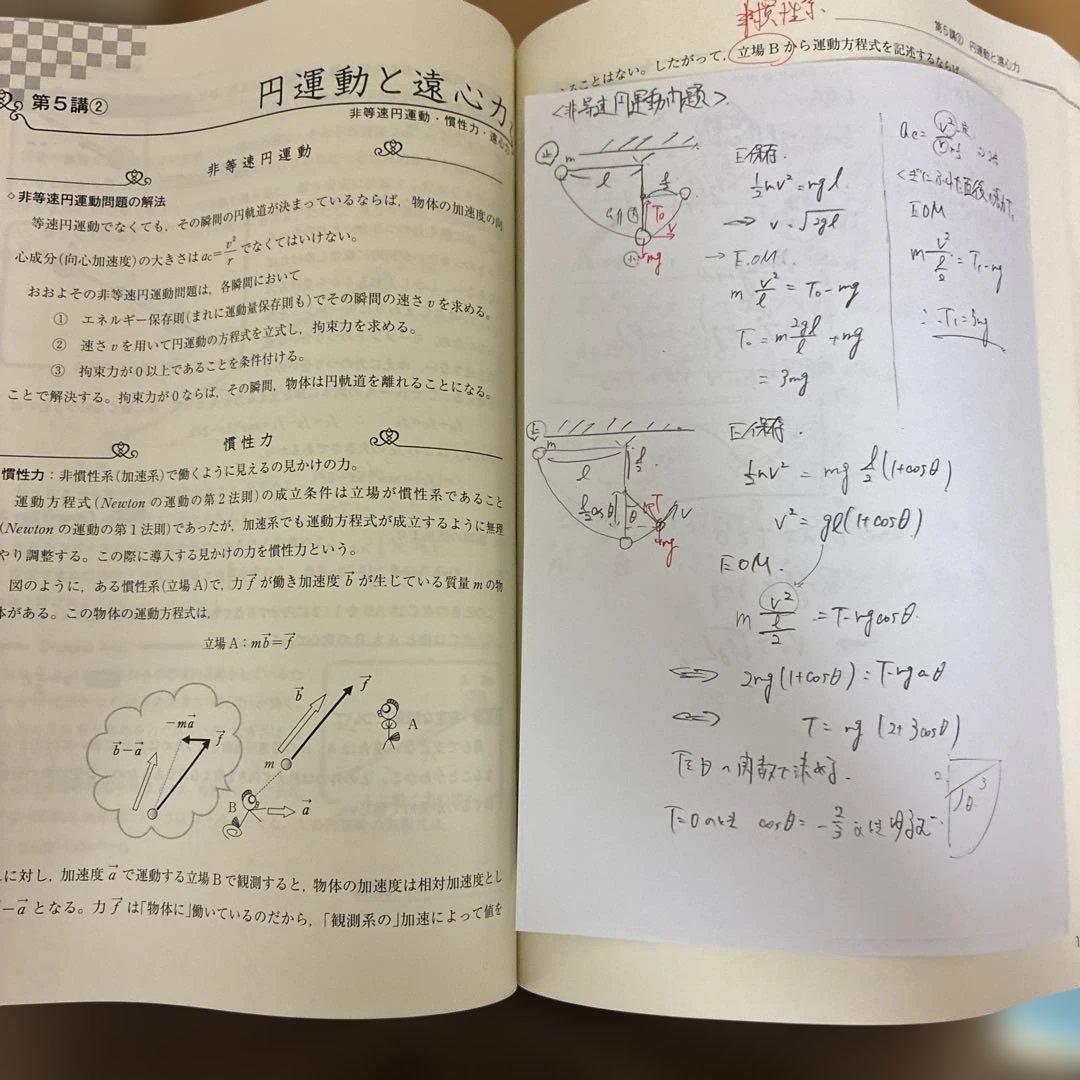 第5講②
円運動と遠心力
非等速円運動・慣性力・遠心力
非等速円運動
◇非等速円運動問題の解法
等速円運動でなくても，その瞬間の円軌道が決まっているならば，物体の加速度の向
心成分(向心加速度)の大きさは a_C=v²/r でなくてはいけない。
おおよその非等速円運動問題は，各瞬間において
① エネルギー保存則(まれに運動量保存則も)でその瞬間の速さ v を求める。
② 速さ v を用いて円運動の方程式を立式し，拘束力を求める。
③ 拘束力が0以上であることを条件付ける。
ことで解決する。拘束力が0ならば，その瞬間，物体は円軌道を離れることになる。
慣性力
慣性力：非慣性系(加速系)で働くように見えるの見かけの力。
運動方程式(Newton の運動の第2法則)の成立条件は立場が慣性系であること
(Newton の運動の第1法則)であったが，加速系でも運動方程式が成立するように無理
やり調整する。この際に導入する見かけの力を慣性力という。
図のように，ある慣性系(立場A)で，力 f⃗ が働き加速度 b⃗ が生じている質量 m の物
体がある。この物体の運動方程式は，
立場A：mb⃗=f⃗
−ma⃗
f⃗
b⃗−a⃗
b⃗
f⃗
m
A
B
a⃗
に対し，加速度 a⃗ で運動する立場Bで観測すると，物体の加速度は相対加速度とし
−a⃗ となる。力 f⃗ は「物体に」働いているのだから，「観測系の」加速によって値を
非慣性系
第5講② 円運動と遠心力
ることはない。したがって，立場Bから運動方程式を記述するならば
<非等速円運動問題>.
m
l
l/2
T₀
v
mg
E保存.
½mv² = mgl
⇒ v = √2gl
→ E.O.M.
m v²/l = T₀ - mg
T₀ = m 2gl/l + mg
= 3mg
a_c = v²/r
くぎにふれた直後の張力T₁
EOM
m v²/(l/2) = T₁ - mg
∴ T₁ = 3mg
m
l
l/2
l/2 cosθ
θ
T
v
mg
E保存.
½mv² = mg l/2 (1+cosθ)
v² = gl(1+cosθ)
EOM.
m v²/(l/2) = T-mgcosθ
⇔ 2mg(1+cosθ) = T-mgcosθ
⇔ T = mg (2+3cosθ)
Tをθの関数で求める.
T=0のとき cosθ = -2/3
2
3
θ